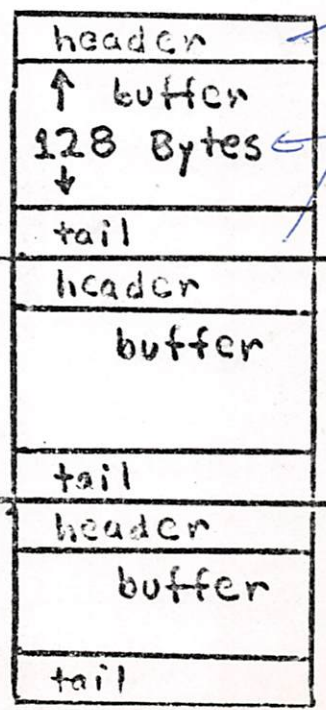 header
↑ buffer
128 Bytes
↓
tail
header
buffer
tail
header
buffer
tail